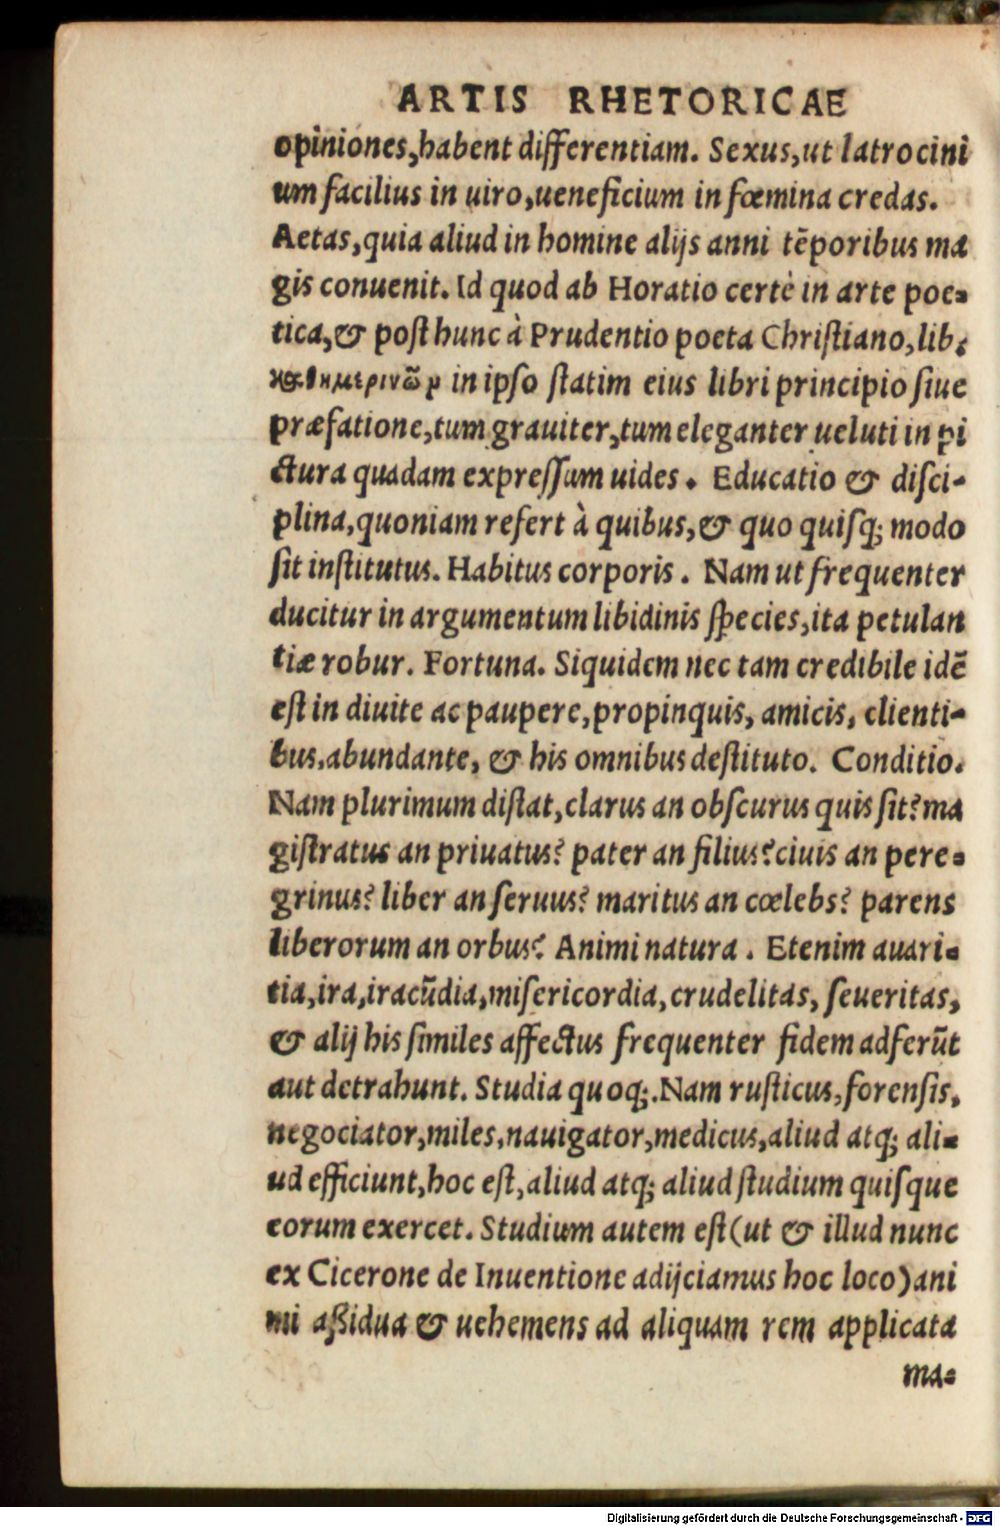 ARTIS RHETORICAE
opiniones, habent differentiam. Sexus, ut latrocini
um facilius in uiro, ueneficium in fœmina credas.
Aetas, quia aliud in homine alijs anni tẽporibus ma
gis conuenit. Id quod ab Horatio certè in arte poe-
tica, & post hunc à Prudentio poeta Christiano, lib.
καθημερινῶν in ipso statim eius libri principio siue
præfatione, tum grauiter, tum eleganter ueluti in pi
ctura quadam expressam uides. Educatio & disci-
plina, quoniam refert à quibus, & quo quisq; modo
sit institutus. Habitus corporis. Nam ut frequenter
ducitur in argumentum libidinis species, ita petulan
tiæ robur. Fortuna. Siquidem nec tam credibile idẽ
est in diuite ac paupere, propinquis, amicis, clienti-
bus, abundante, & his omnibus destituto. Conditio.
Nam plurimum distat, clarus an obscurus quis sit? ma
gistratus an priuatus? pater an filius? ciuis an pere-
grinus? liber an seruus? maritus an cœlebs? parens
liberorum an orbus? Animi natura. Etenim auari-
tia, ira, iracũdia, misericordia, crudelitas, seueritas,
& alij his similes affectus frequenter fidem adferũt
aut detrahunt. Studia quoq;. Nam rusticus, forensis,
negociator, miles, nauigator, medicus, aliud atq; ali-
ud efficiunt, hoc est, aliud atq; aliud studium quisque
eorum exercet. Studium autem est (ut & illud nunc
ex Cicerone de Inuentione adijciamus hoc loco) ani
mi aßidua & uehemens ad aliquam rem applicata
ma-
Digitalisierung gefördert durch die Deutsche Forschungsgemeinschaft - DFG